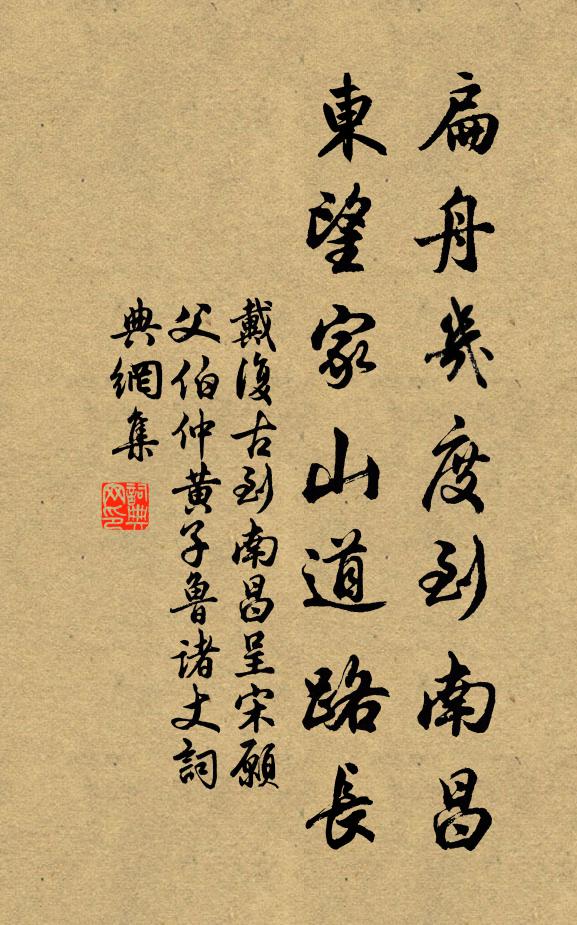 扁舟幾度到南昌
東望家山道路長
戴復古到南昌呈宋願
父伯仲黄子魯諸丈詞
典網集
詞典
网印